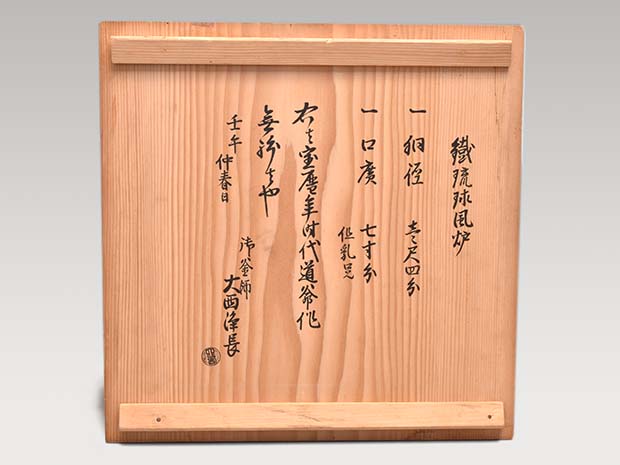 鐵琉球風炉
一 胴徑 壱尺四分
一 口廣 七寸分
但乳足
右者宝暦年時代道爺作
無紛者也
壬午 仲春日
御釜師
大西浄長